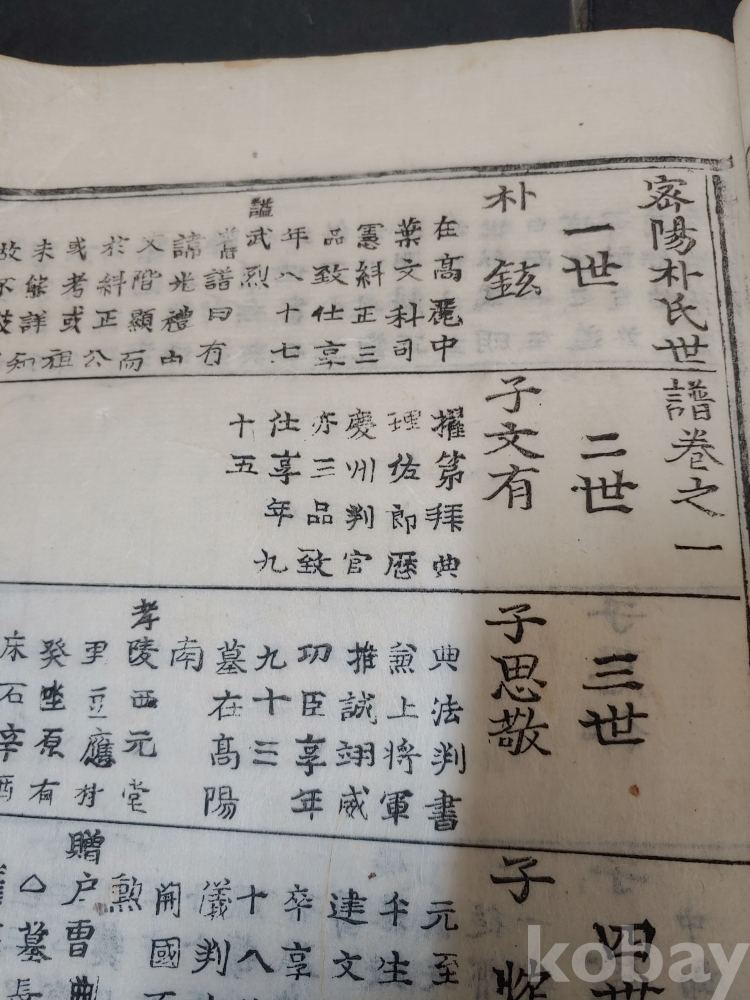 密陽朴氏世譜卷之一
一世
朴鉉
在高麗中
葉文科司
憲糾正三
品致仕享
年八十七
諡武烈
舊譜曰有
諱光禮由
文階顯而
於糾正公
或考或祖
未能詳知
故不
二世
子文有
擢第拜典
理佐郎歷
慶州判官
亦三品致
仕享年九
十五
三世
子思敬
典法判書
兼上將軍
推誠翊威
功臣享年
九十三
墓在高陽
南
孝陵西元堂
里豆應村
癸坐原有
床石辛酉
四世
子
元至
半生
建文
卒享
十八
儀判
開國
勲
贈戶曹
△墓
kobay